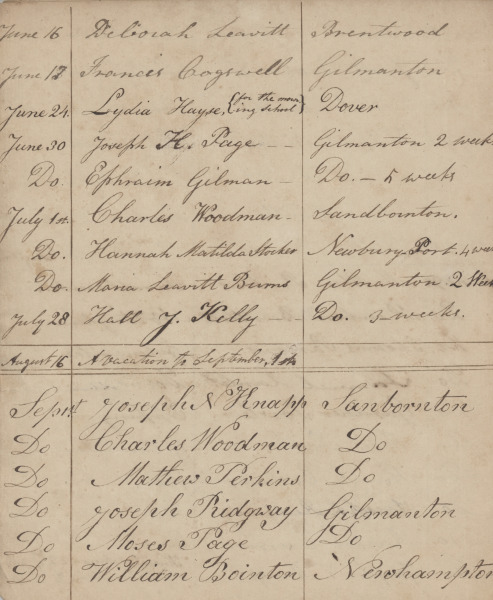 June 16 Deborah Leavitt Brentwood
June 17 Frances Cogswell Gilmanton
June 24. Lydia Hayse, {for the morn
ing school} Dover
June 30 Joseph H. Page - - Gilmanton 2 weeks
Do. Ephraim Gilman - Do. - 5 weeks
July 1st. Charles Woodman - Sandbointon.
Do. Hannah Matilda Stocker Newbury-Port. 4 wee
Do. Maria Leavitt Burns Gilmanton 2 Week
July 28 Hall J. Kelly - - Do. 3 weeks.
August 16 A vacation to September, 1st
Sep 1st Joseph N Knapp Sanbornton
Do Charles Woodman Do
Do Mathew Perkins Do
Do Joseph Ridgway Gilmanton
Do Moses Page Do
Do William Bointon Newhampton